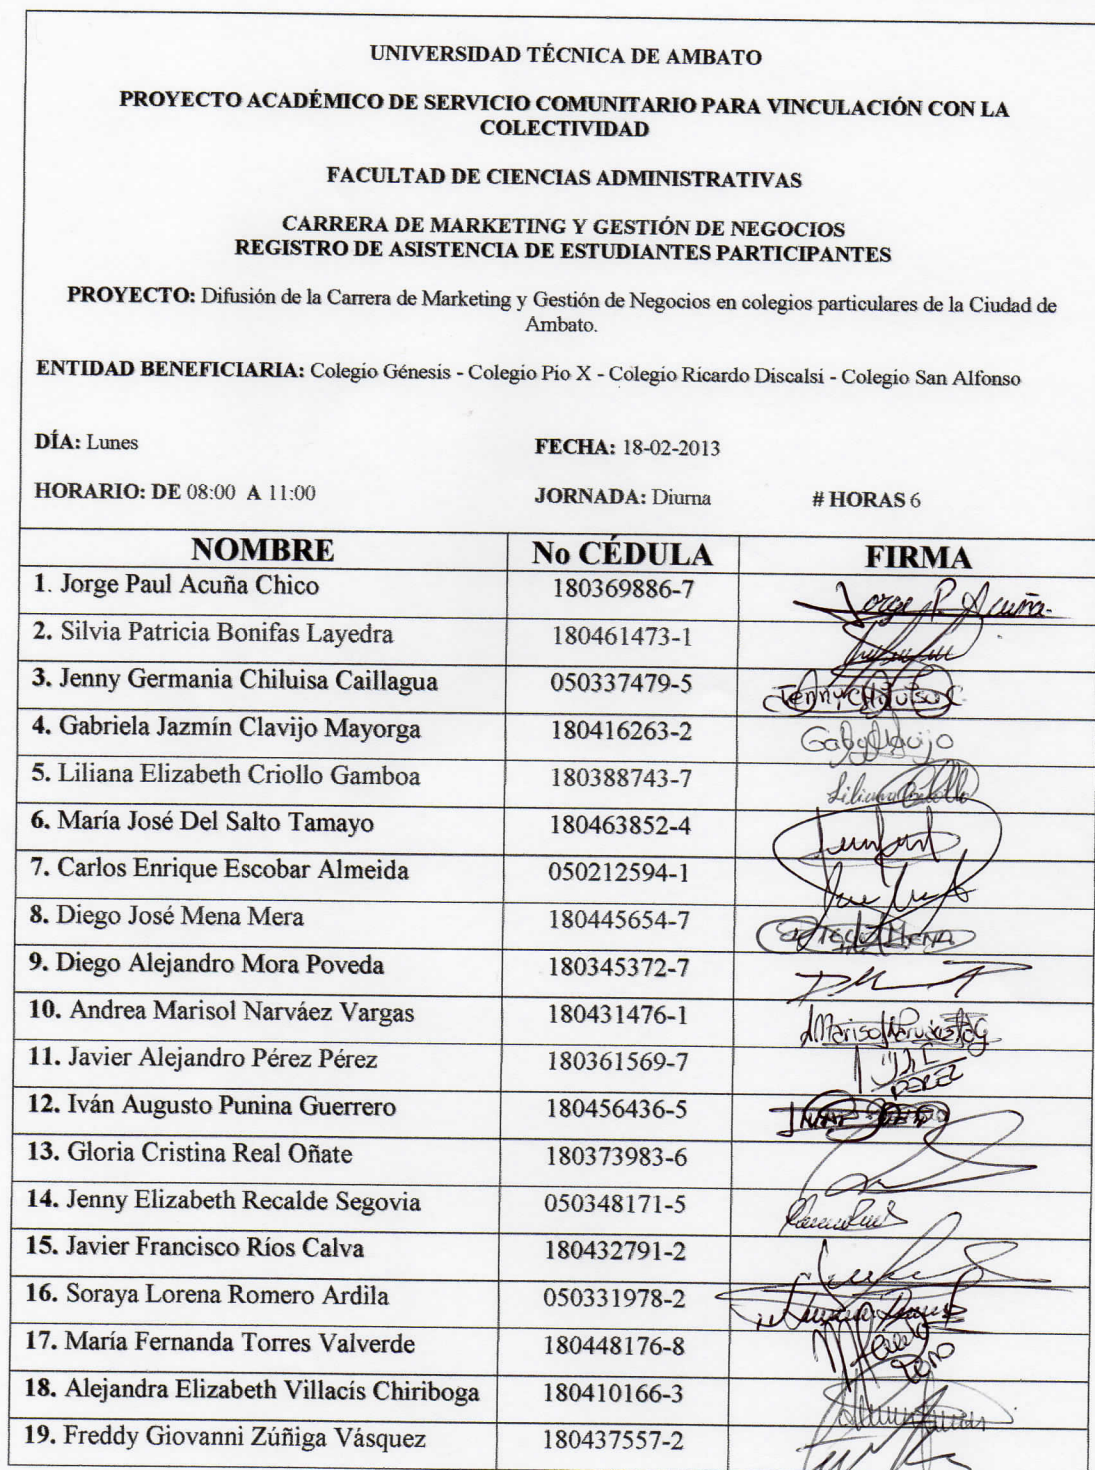 UNIVERSIDAD TÉCNICA DE AMBATO
PROYECTO ACADÉMICO DE SERVICIO COMUNITARIO PARA VINCULACIÓN CON LA
COLECTIVIDAD
FACULTAD DE CIENCIAS ADMINISTRATIVAS
CARRERA DE MARKETING Y GESTIÓN DE NEGOCIOS
REGISTRO DE ASISTENCIA DE ESTUDIANTES PARTICIPANTES
PROYECTO: Difusión de la Carrera de Marketing y Gestión de Negocios en colegios particulares de la Ciudad de
Ambato.
ENTIDAD BENEFICIARIA: Colegio Génesis - Colegio Pio X - Colegio Ricardo Discalsi - Colegio San Alfonso
DÍA: Lunes FECHA: 18-02-2013
HORARIO: DE 08:00 A 11:00 JORNADA: Diurna # HORAS 6
NOMBRE No CÉDULA FIRMA
1. Jorge Paul Acuña Chico 180369886-7 Jorge P. Acuña
2. Silvia Patricia Bonifas Layedra 180461473-1
3. Jenny Germania Chiluisa Caillagua 050337479-5 Jenny Chiluisa C.
4. Gabriela Jazmín Clavijo Mayorga 180416263-2 Gaby Clavijo
5. Liliana Elizabeth Criollo Gamboa 180388743-7 Liliana Criollo
6. María José Del Salto Tamayo 180463852-4
7. Carlos Enrique Escobar Almeida 050212594-1
8. Diego José Mena Mera 180445654-7 Diego Mena
9. Diego Alejandro Mora Poveda 180345372-7
10. Andrea Marisol Narváez Vargas 180431476-1
11. Javier Alejandro Pérez Pérez 180361569-7 PEREZ
12. Iván Augusto Punina Guerrero 180456436-5
13. Gloria Cristina Real Oñate 180373983-6
14. Jenny Elizabeth Recalde Segovia 050348171-5
15. Javier Francisco Ríos Calva 180432791-2
16. Soraya Lorena Romero Ardila 050331978-2
17. María Fernanda Torres Valverde 180448176-8
18. Alejandra Elizabeth Villacís Chiriboga 180410166-3
19. Freddy Giovanni Zúñiga Vásquez 180437557-2